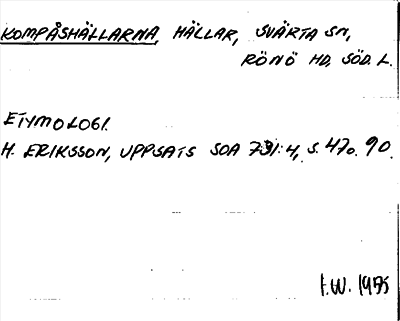 KOMPÅSHÄLLARNA, HÄLLAR, SVÄRTA SN,
RÖNÖ HD, SÖD. L.
ETYMOLOGI.
H. ERIKSSON, UPPSATS SOA 731:4, S. 47o. 90.
I.W. 1975